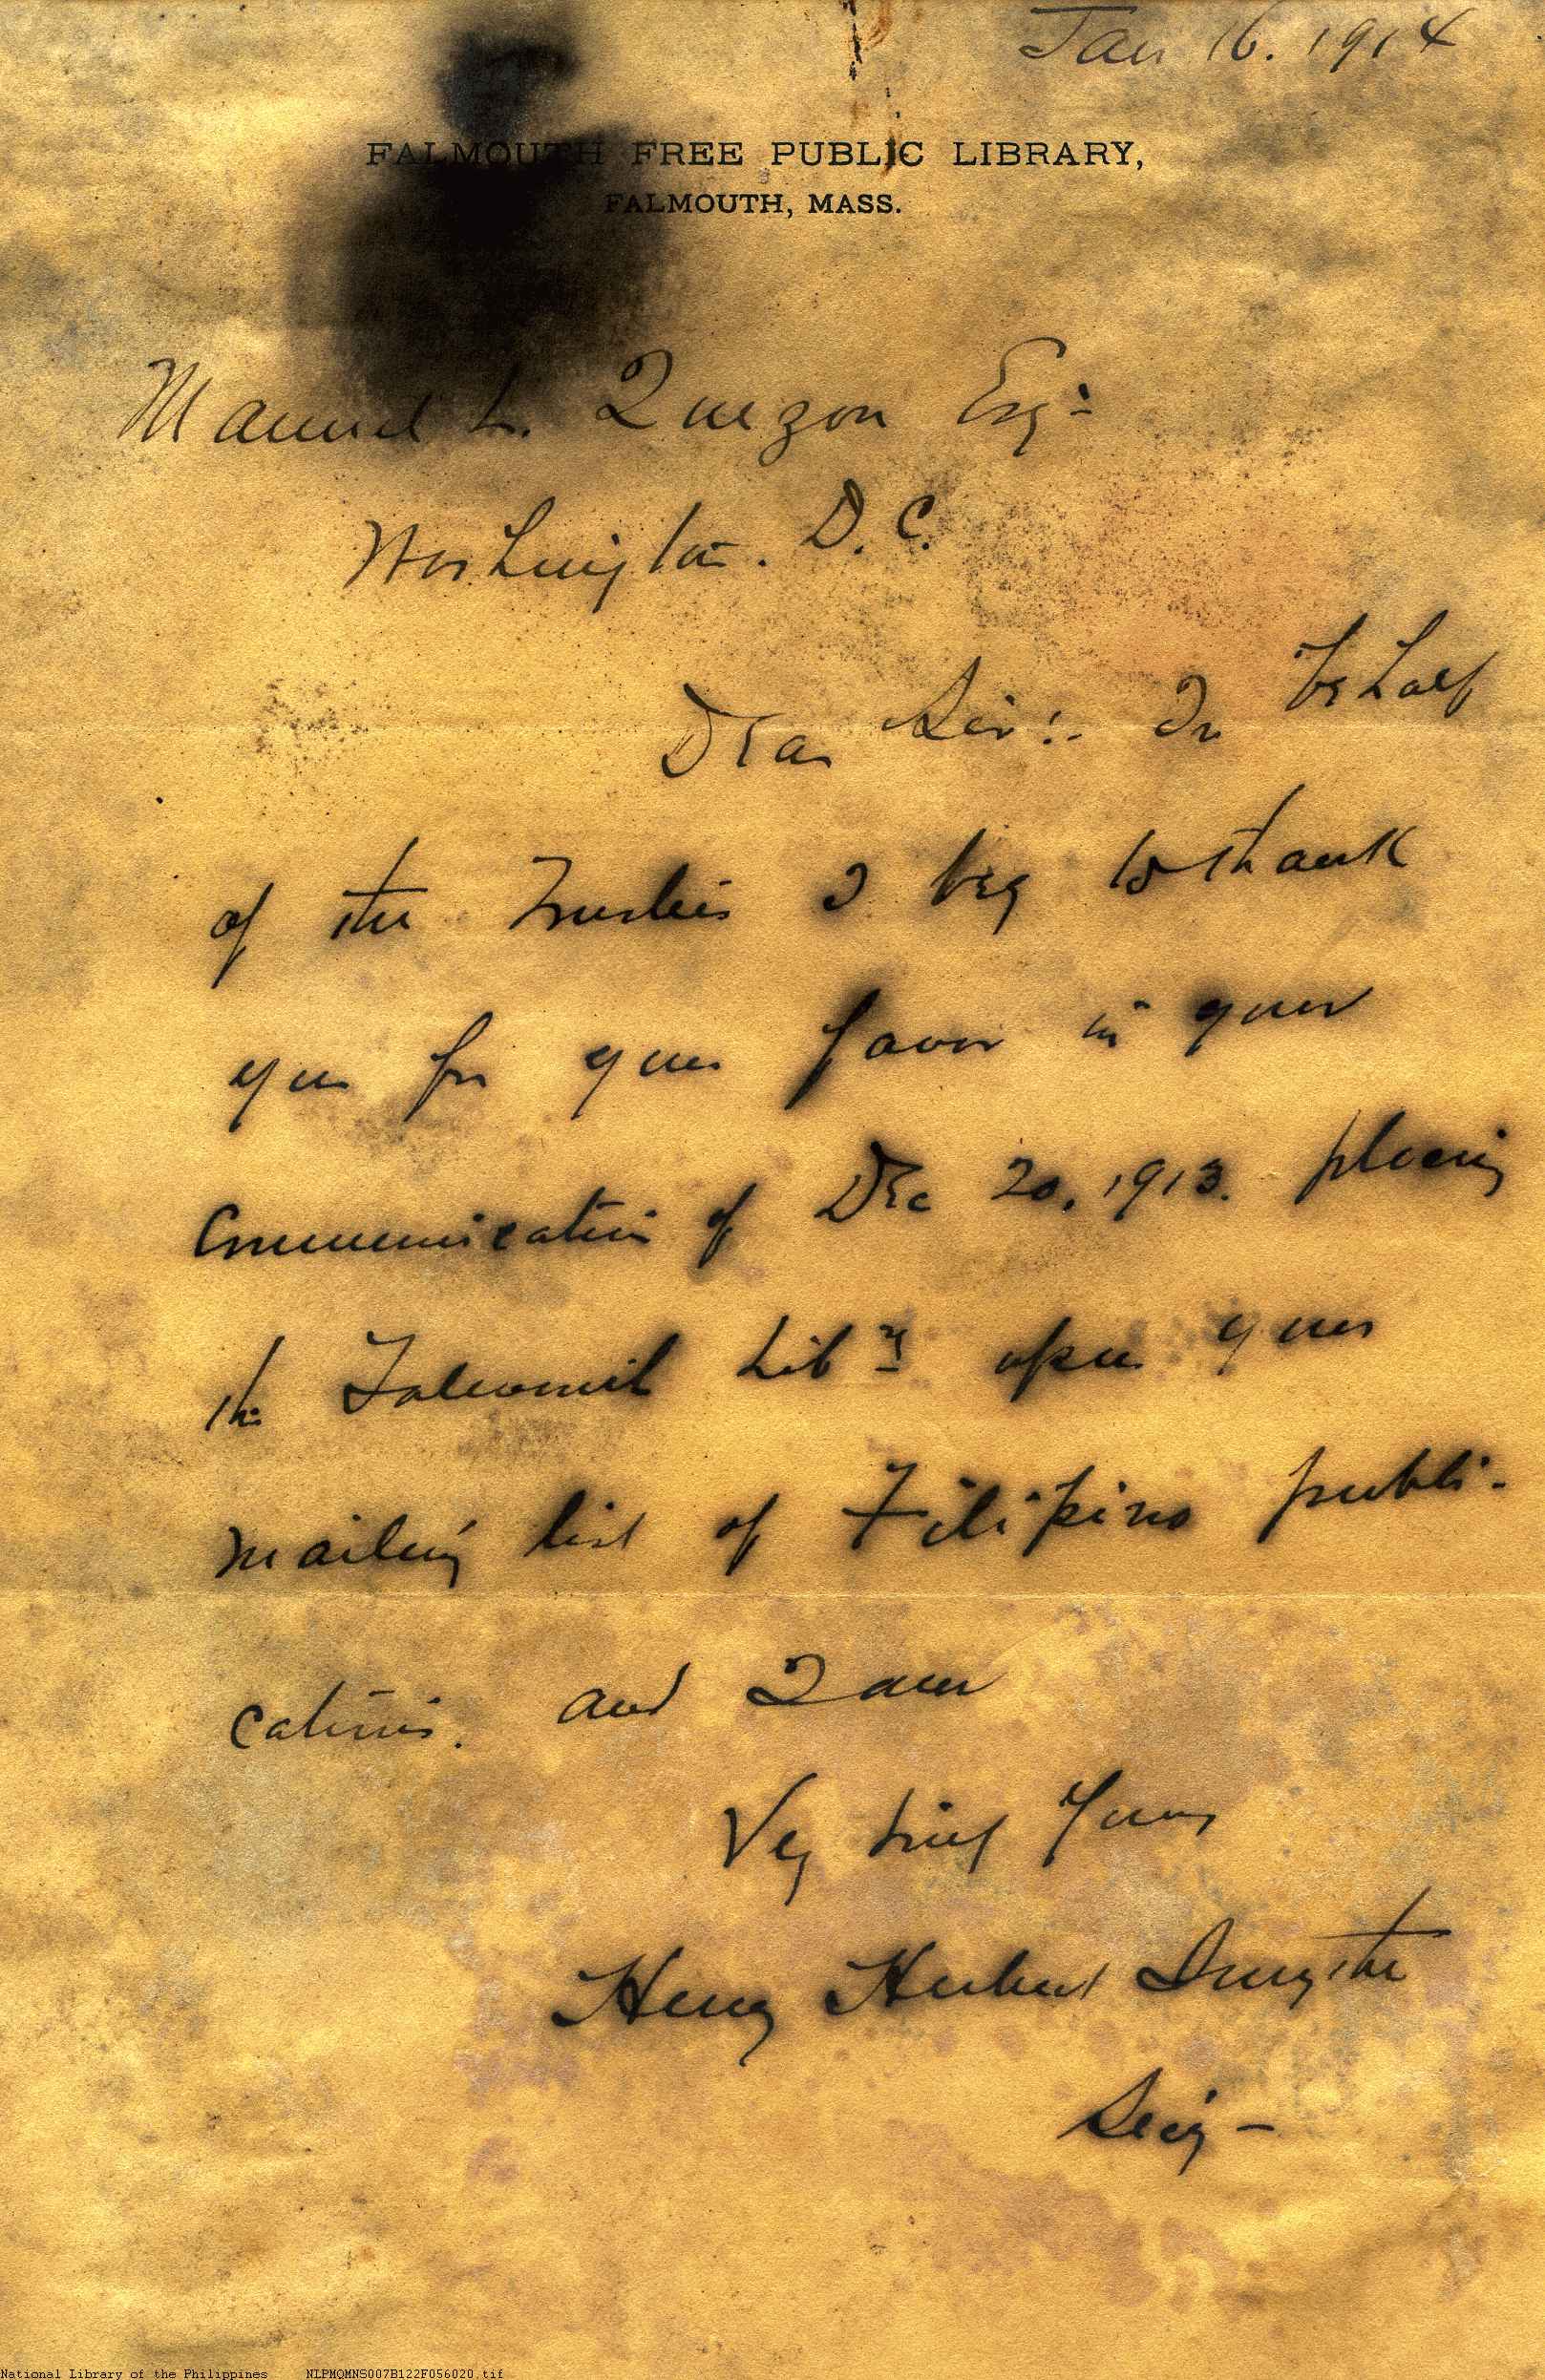 Jan 16. 1914
FALMOUTH FREE PUBLIC LIBRARY,
FALMOUTH, MASS.
Manuel L. Quezon Esq.
Washington. D. C.
Dear Sir:. In behalf
of the Trustees I beg to thank
you for your favor in your
Communication of Dec 20, 1913. placing
the Falmouth Liby upon your
mailing list of Filipino publi-
cations. and I am
Very truly Yours
Henry Herbert Smythe
Secy -
National Library of the Philippines NLPMQMNS007B122F056020.tif